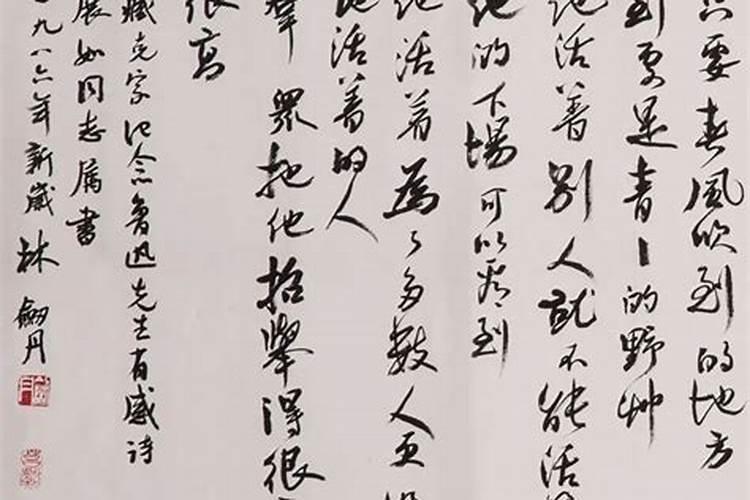 只要春風吹到的地方
到處是青〻的野艸
他活着別人就不能活
他的下場可以看到
他活着為了多數人更
他活着的人
羣眾把他抬舉得很
很高
臧克家紀念魯迅先生有感詩
展如同志属書
九八六年新歲林劍丹